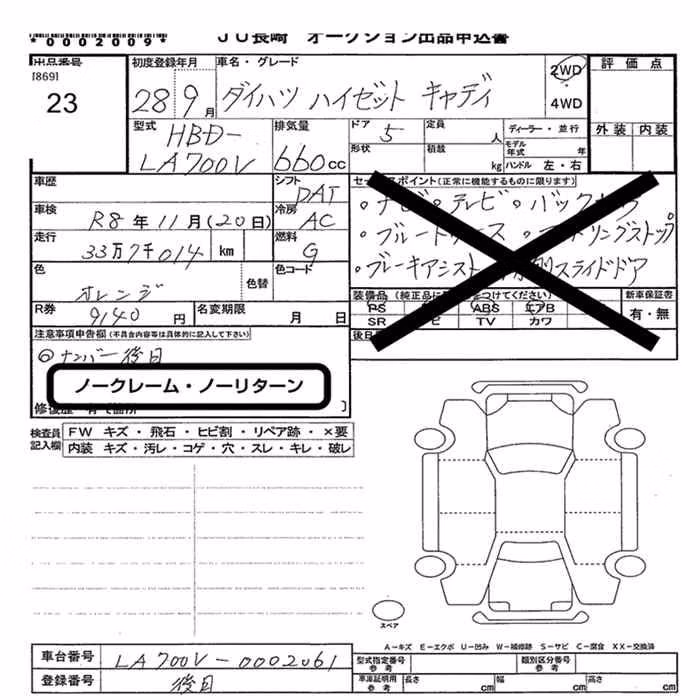 *0002009*
JU長崎 オークション出品申込書
出品番号
[869]
23
初度登録年月
28 9月
車名・グレード
ダイハツ ハイゼット キャディ
2WD
4WD
評価点
外装 内装
型式
HBD-
LA700V
排気量
660cc
ドア
5
定員
人
ディーラー・並行
形状
積載
kg
モデル年式
年
ハンドル 左・右
車歴
シフト
DAT
車検
R8年11月(20日)
冷房
AC
走行
33万7千014 km
燃料
G
色
オレンジ
色替
色コード
R券
9140円
名変期限
月 日
セールスポイント(正常に機能するものに限ります)
。ナビ。テレビ。バック
。ブルートゥース 。アイドリングストップ
。ブレーキアシスト スライドドア
装備品
PS ABS エアB
SR TV カワ
新車保証書
有・無
後日
注意事項申告欄(不具合内容等は具体的に記入して下さい)
◎ナンバー後日
ノークレーム・ノーリターン
修復歴 有
検査員記入欄
FW キズ・飛石・ヒビ割・リペア跡・×要
内装 キズ・汚レ・コゲ・穴・スレ・キレ・破レ
スペア
A-キズ E-エクボ U-凹み W-補修跡 S-サビ C-腐食 XX-交換済
車台番号
LA700V-0002061
登録番号
後日
型式指定番号
参考
類別区分番号
参考
車庫証明用
参考
長さ cm
幅 cm
高さ cm